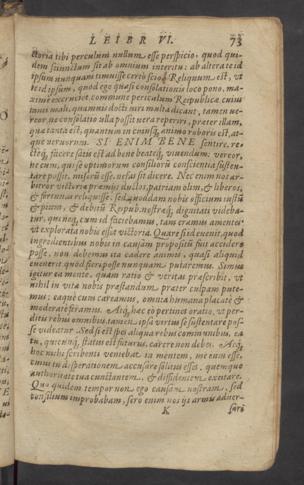 LEIBR VI. 73
ctoria tibi perculum nullum esse perspicio: quod qui-
dem seiunctum sit ab omnium interitu: ab altera te id
ipsum nunquam timuisse certò scio. Reliquum est, ut
te id ipsum, quod ego quasi consolationis loco pono, ma-
ximè excruciet, commune periculum Reipublicæ: cuius
tanti mali, quamuis docti uiri multa dicant, tamen ue-
reor, ne consolatio ulla possit uera reperiri, præter illam,
quæ tanta est, quantum in cuiusq; animo roboris est, at-
que neruorum. SI ENIM BENE sentire, re-
cteq; facere satis est ad bene beateq; uiuendum: uereor,
ne eum, qui se optimorum consiliorū conscientia susten-
tare possit, miserū esse, nefas sit dicere. Nec enim nos ar-
bitror uictoriæ præmijs ductos, patriam olim, & liberos,
& fortunas reliquisse: sed quoddam nobis officium iustū
& pium, & debitū Reipub. nostræq; dignitati uideba-
mur sequi: nec, cum id faciebamus, tam eramus amentes,
ut explorata nobis esset uictoria. Quare si id euenit, quod
ingredientibus nobis in causam propositū fuit accidere
posse, non debemus ita cadere animis, quasi aliquid
euenerit, quod fieri posse nunquam putaremus. Simus
igitur ea mente, quam ratio & ueritas præscribit, ut
nihil in uita nobis præstandum præter culpam pute-
mus: eaq́ue cum careamus, omnia humana placatè &
moderatè feramus. Atq; hæc eò pertinet oratio, ut per-
ditis rebus omnibus, tamen ipsa uirtus se sustentare pos-
se uideatur. Sed si est spes aliqua rebus communibus, ea
tu, quicunq; status est futurus, carere non debes. Atq;
hoc mihi scribenti ueniebat in mentem, me eum esse,
cuius tu desperationem accusare solitus esses, quemque
authoritate tua cunctantem, & diffidentem excitare.
Quo quidem tempore non ego causam nostram, sed
consilium improbabam, sero enim nos ijs armis aduer-
K sari